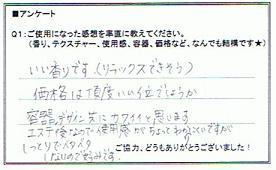 ■アンケート
Q1:ご使用になった感想を率直に教えてください。
(香り、テクスチャー、使用感、容器、価格など、なんでも結構です★)
いい香りです(リラックスできそう)
価格は丁度いい位でしょうか
容器デザイン共にカワイイと思います
エステ後なので使用感がちょっとわかりにくいですが
しっとりでベタベタ
しないので好みです。
ご協力、どうもありがとうございました!